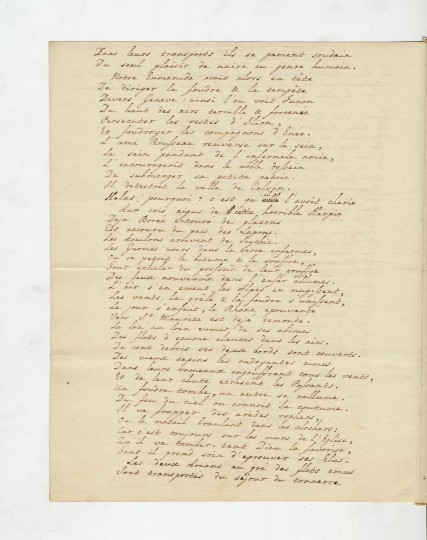 Dans leurs transports ils se pament soudain
Du seul plaisir de nuire au genre humain.
Notre Eumenide avoit alors en tête
De diriger la foudre & la tempête
Devers Geneve: ainsi l'on voit Junon
Du haut des airs terrible & forcenée
Persecuter les restes d'Ilion,
Et foudroyer les compagnons d'Enée.
L'ami Rousseau renversé sur le sein,
Le sein pendant de l'infernale amie,
L'encourageoit dans le noble dessein
De submerger sa petite patrie.
Il detestoit la ville de Calvin.
Helas! pourquoi? c'est qu' il l'avoit cherie
Aux cris aigus de cette horrible Harpie
Deja Borée entouré de glaçons
Est accouru du païs des Lapons.
Les Aquilons arrivent de Scythie.
Les gnomes noirs dans la terre enfermés,
Où se paitrit le bitume & la
Font exhaler du profond de leur gouffre
Des feux nouveaux dans l'enfer allumés.
L'air s'en emeut, les Alpes en mugissent,
Les vents, la grêle & la foudre s'unissent,
Le jour s'enfuit, le Rhône epouvanté
Vers St. Maurice est deja remonté.
Le lac au loin vomit de ses abimes
Des flots d'ecume elancés dans les airs.
De cent debris ses deux bords sont couverts.
Des vieux sapins les ondoyantes cimes
Dans leurs rameaux engouffrent tous les vents,
Et de leur chute ecrasent les Passants.
Un foudre tombe, un autre se rallume.
Du feu du ciel on connoit la coutume.
Il va frapper des arides rochers,
Ou le métail branlant dans les clochers;
Car c'est toujours sur les murs de l'Eglise,
Qu'il va tomber: tant Dieu la favorise,
Tant il prend soin d'eprouver ses Elus.
Les deux Amans au gré des flots emus
Sont transportés du séjour du tonnerre